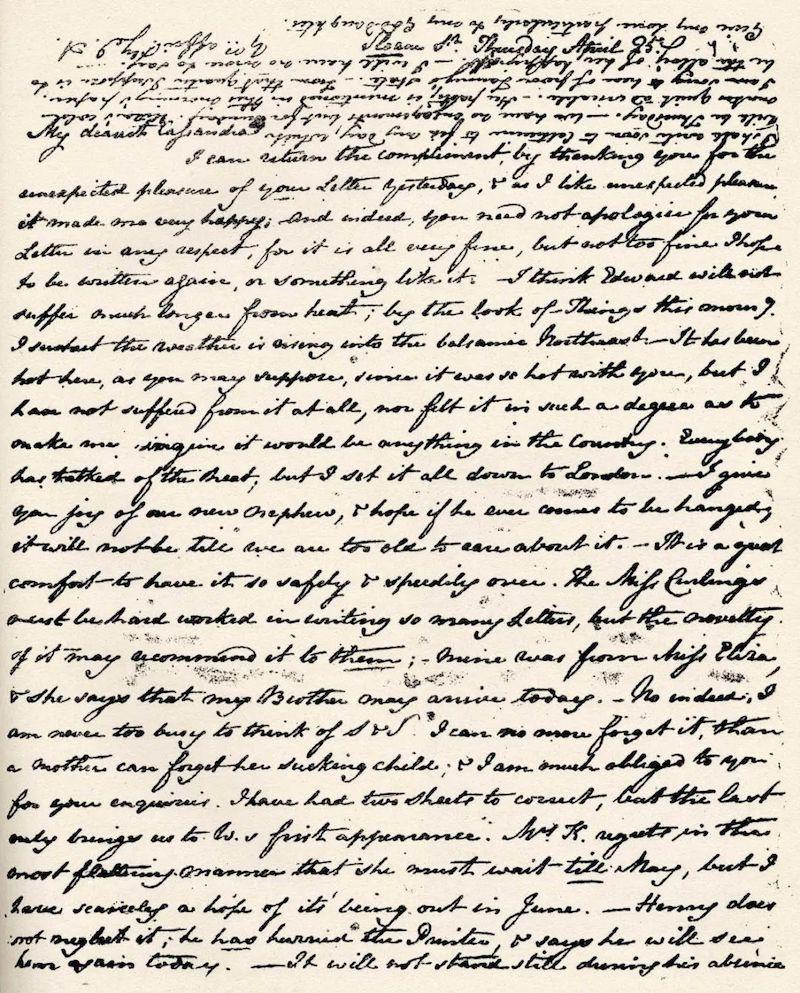 Sloane St. Thursday April 25.
My dearest Cassandra
I can return the compliment by thanking you for the
unexpected pleasure of your Letter yesterday, & as I like unexpected pleasure,
it made me very happy; And indeed, you need not apologise for your
Letter in any respect, for it is all very fine, but not too fine I hope
to be written again, or something like it. — I think Edward will not
suffer much longer from heat; by the look of Things this morng.
I suspect the weather is rising into the balsamic Northeast. — It has been
hot here, as you may suppose, since it was so hot with you, but I
have not suffered from it at all, nor felt it in such a degree as to
make me imagine it would be anything in the Country. Everybody
has talked of the heat, but I set it all down to London. — I give
you joy of our new nephew, & hope if he ever comes to be hanged,
it will not be till we are too old to care about it. — It is a great
comfort to have it so safely & speedily over. The Miss Curlings
must be hard worked in writing so many Letters, but the novelty
of it may recommend it to them; — mine was from Miss Eliza,
& she says that my Brother may arrive today. — No indeed, I
am never too busy to think of S & S. I can no more forget it, than
a mother can forget her sucking child; & I am much obliged to you
for your enquiries. I have had two sheets to correct, but the last
only brings us to W.s first appearance. Mrs K. regrets in the
most flattering manner that she must wait till May, but I
have scarcely a hope of its being out in June. — Henry does
not neglect it; he has hurried the Printer, & says he will see
him again today. — It will not stand still during his absence
I shall write soon to Catherine to fix my day, which
will be Thursday. — We have no engagements but for Sunday. Eliza's cold
makes quiet adviseable. — Her party is mentioned in this morning's paper. —
I am sorry to hear of poor Fanny's state. — From that quarter I suppose is to
be the alloy of her happiness. — I will have no more to say. —
Yrs affecly J. A.
Give my Love particularly to my God Daughter.